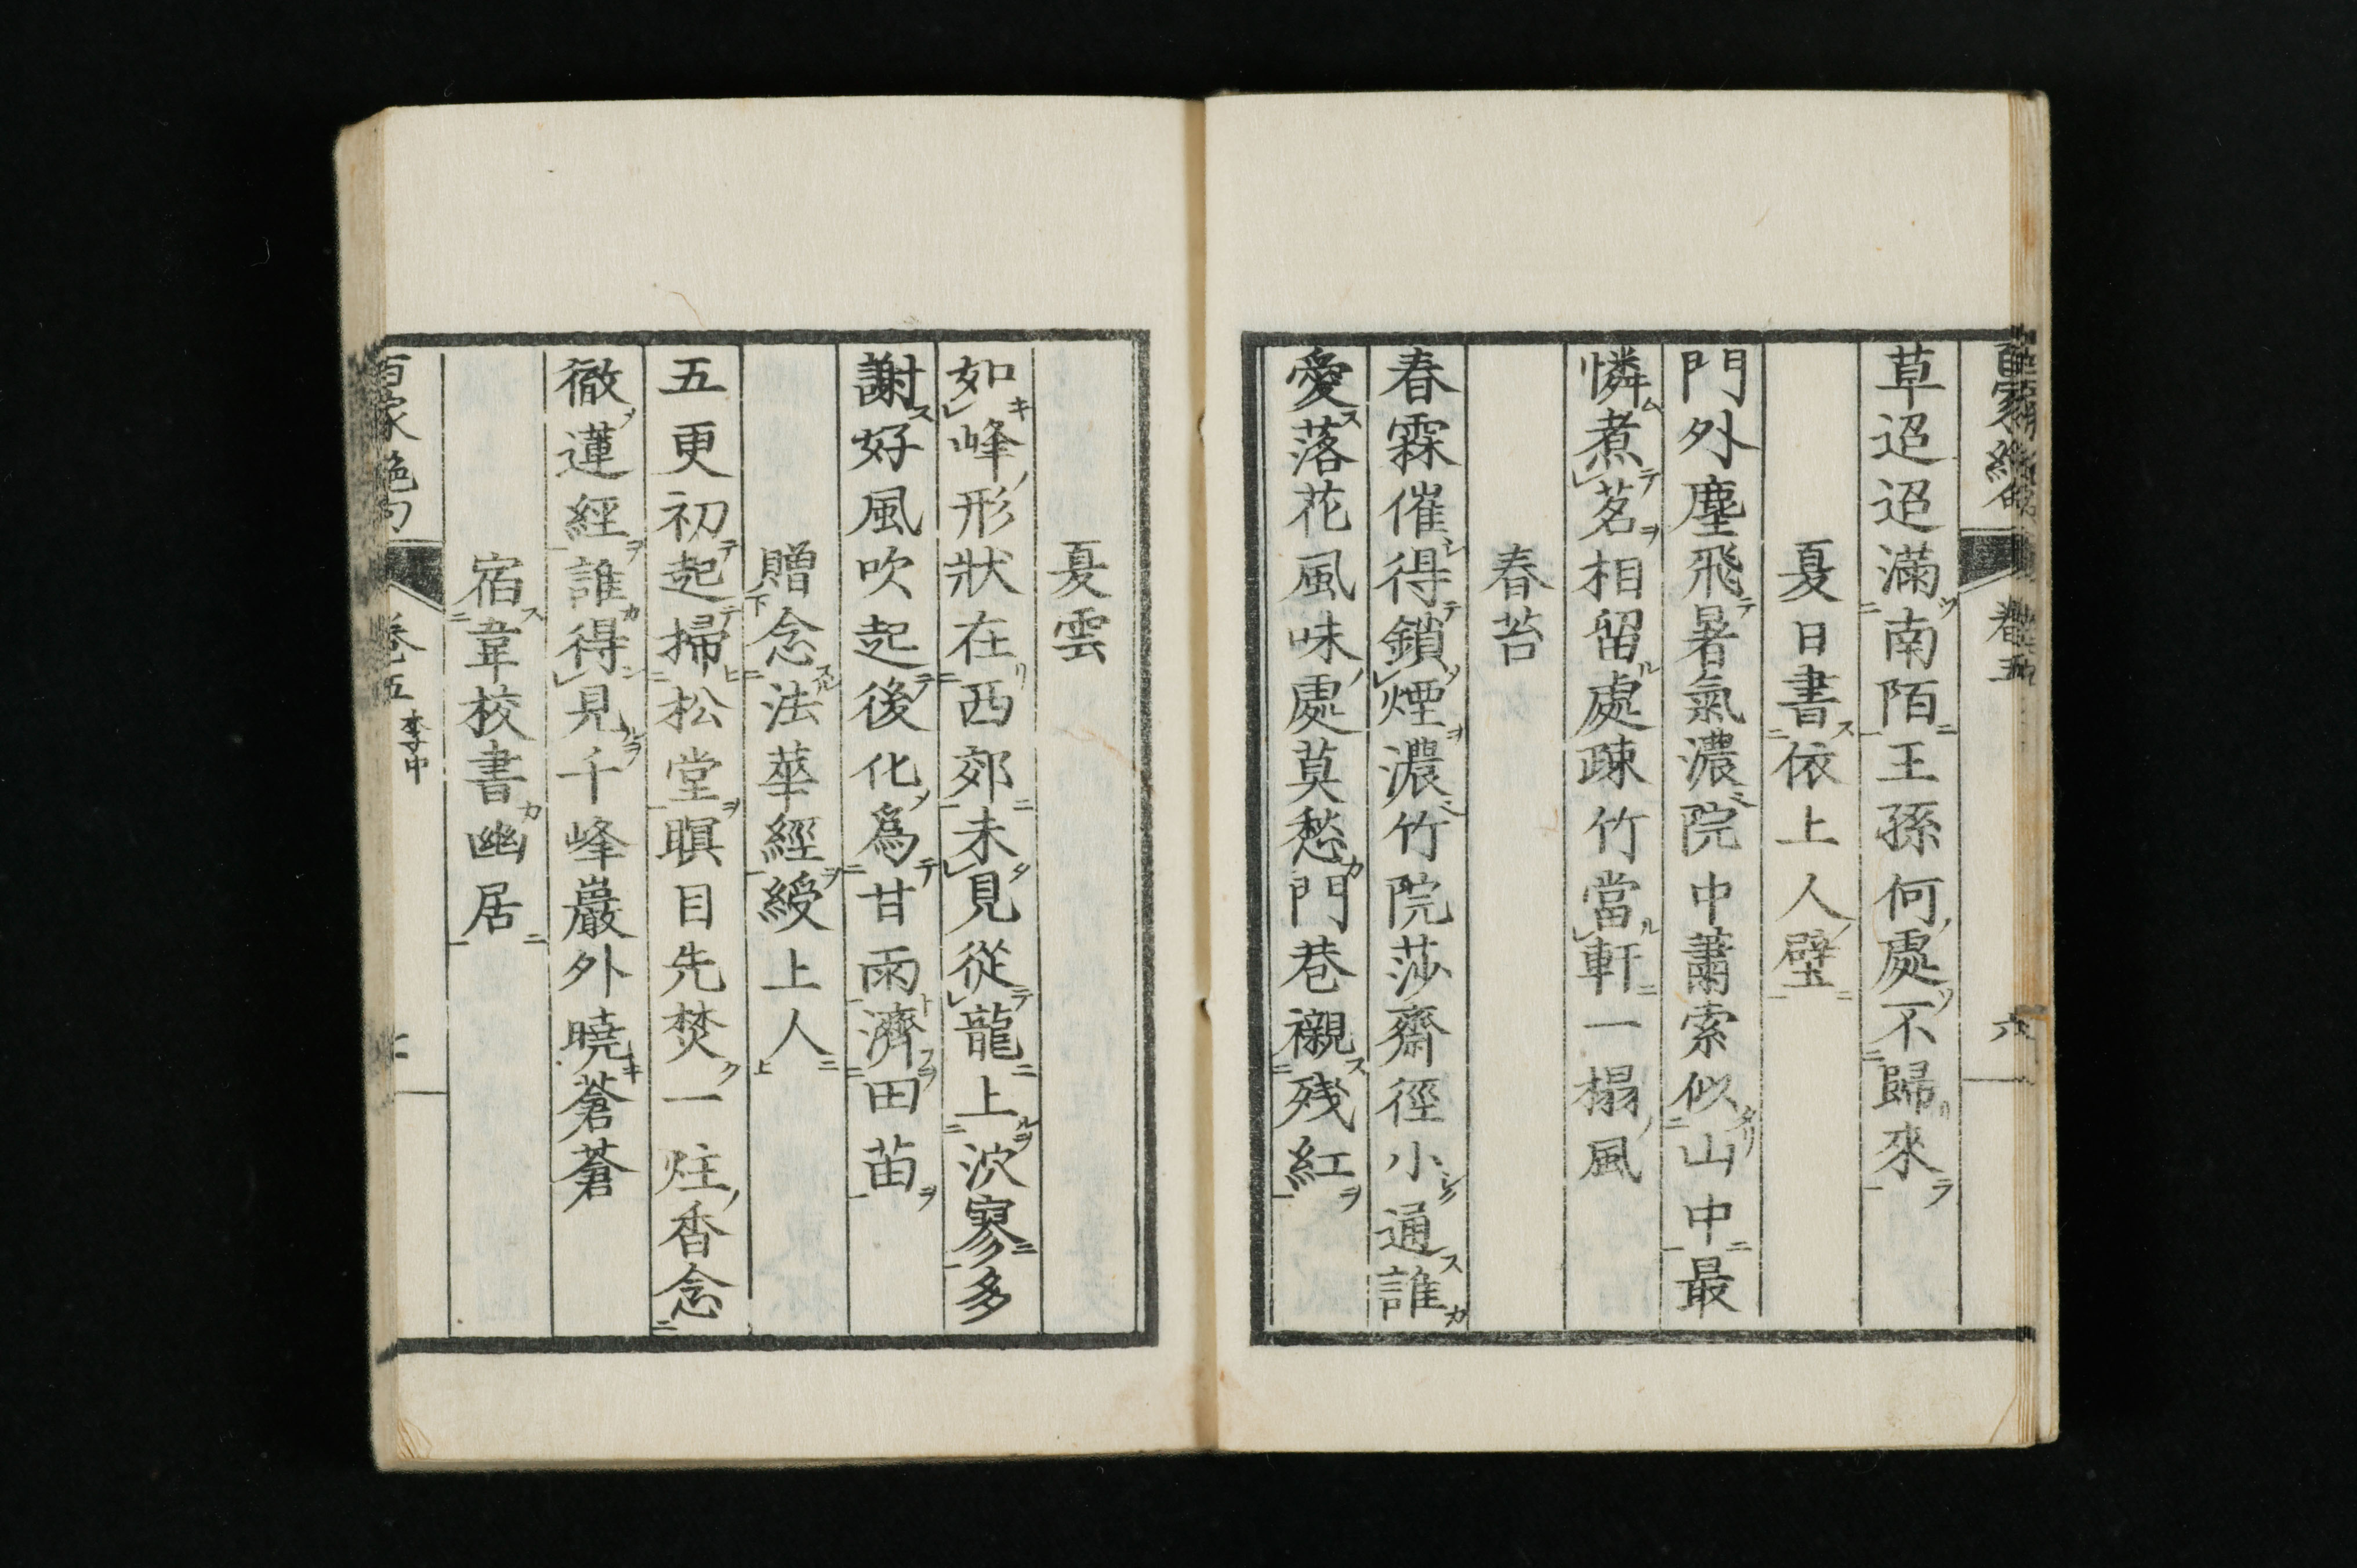 草迢迢滿南陌王孫何處不歸來
夏日書依上人壁
門外塵飛暑氣濃院中蕭索似山中最
憐煮茗相留處疎竹當軒一榻風
春苔
春霖催得鎖煙濃竹院莎齋徑小通誰
愛落花風味處莫愁門巷襯残紅
夏雲
如峰形狀在西郊未見從龍上泬寥多
謝好風吹起後化爲甘雨濟田苗
贈念法華經綬上人
五更初起掃松堂瞑目先焚一炷香念
徹蓮經誰得見千峰巖外曉蒼蒼
宿韋校書幽居
百家絶句
卷五
李中